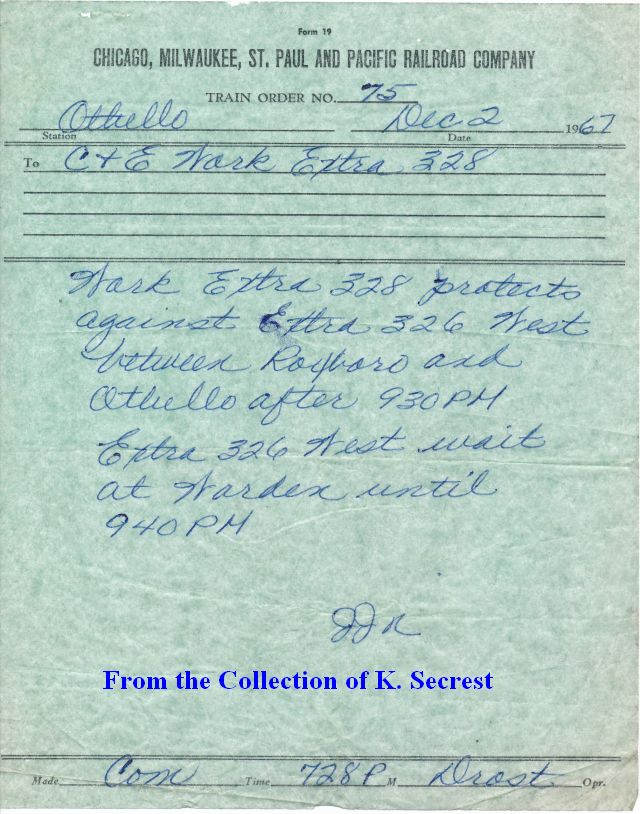 Form 19
CHICAGO, MILWAUKEE, ST. PAUL AND PACIFIC RAILROAD COMPANY
TRAIN ORDER NO. 75
Othello Dec 2 1967
Station Date
To C+E Work Extra 328
Work Extra 328 protects
against Extra 326 West
between Roxboro and
Othello after 930 PM
Extra 326 West wait
at Warden until
940 PM
JJR
From the Collection of K. Secrest
Made Com Time 728 P M Drost Opr.